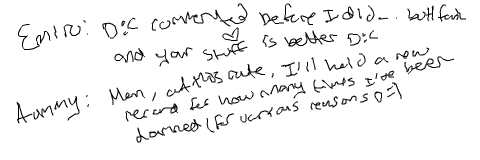 Emiro: D:< commented before I did... but fair
and your stuff is better D:<
Aummy: Man, at this rate, I'll hold a new
record for how many times I've been
damned (for various reasons D=)